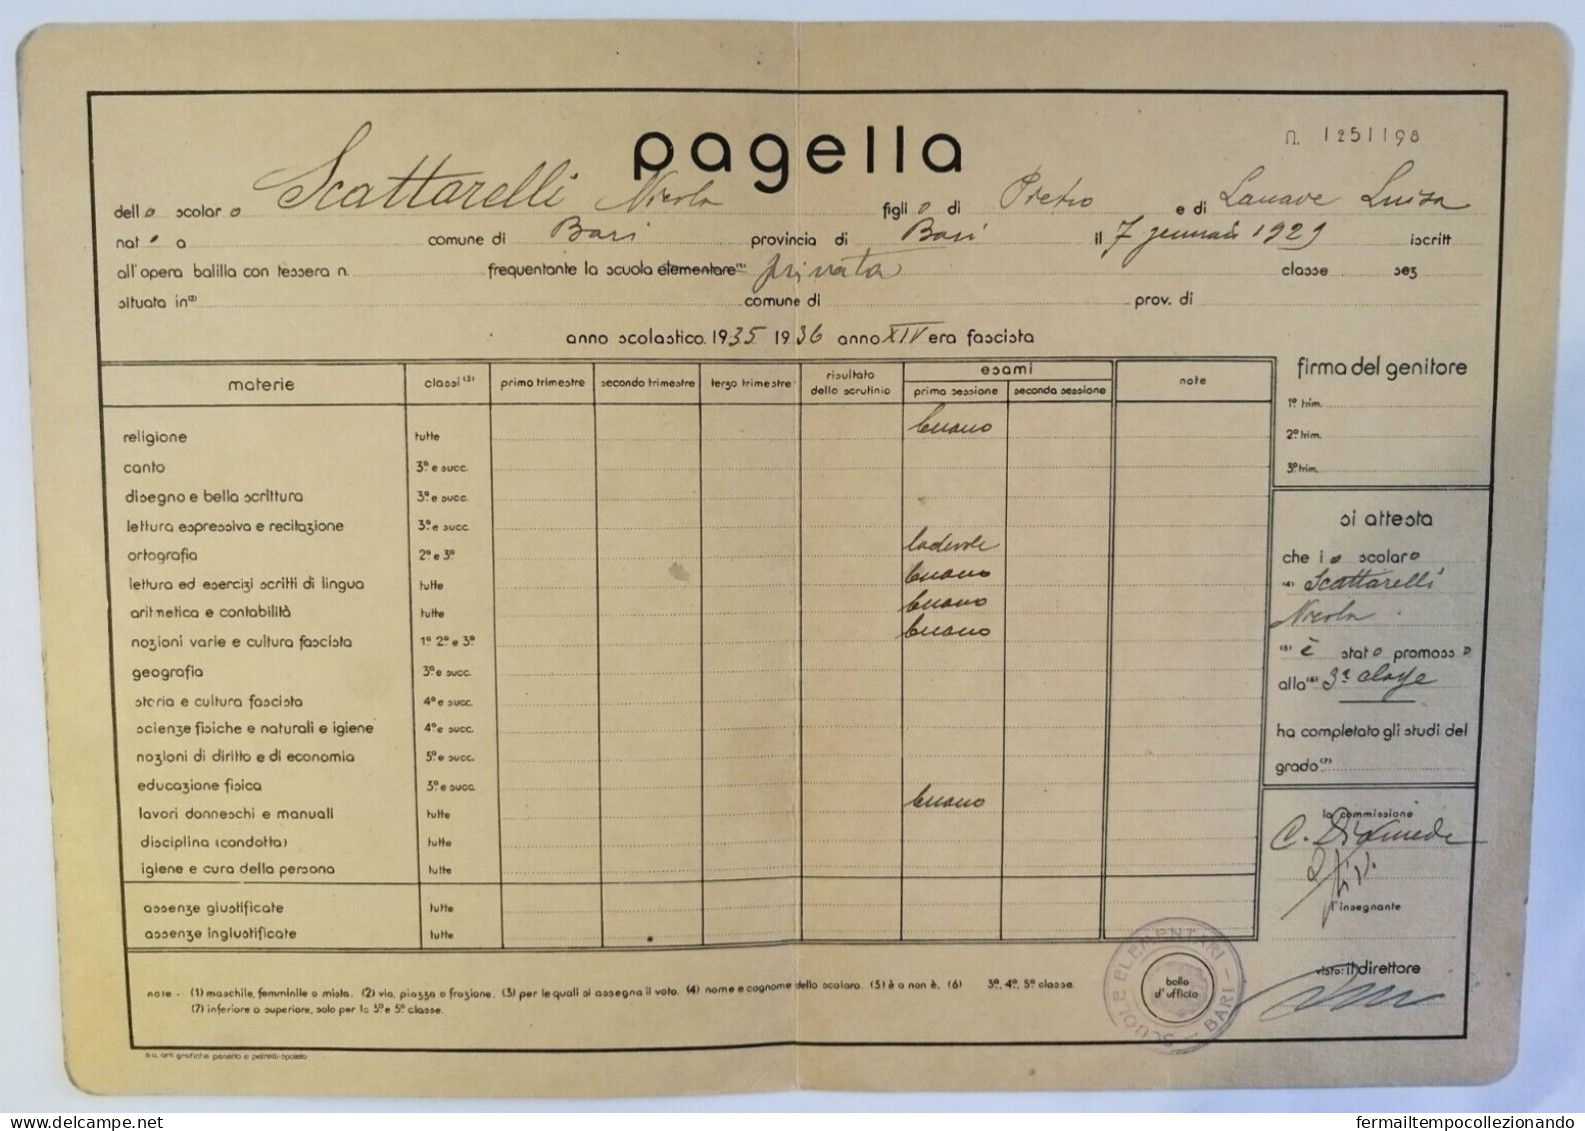 pagella
n. 1251198
dello scolaro Scattarelli Nicola figlio di Pietro e di Lanave Luisa
nato a comune di Bari provincia di Bari il 7 gennaio 1929 iscritt
all'opera balilla con tessera n. frequentante la scuola elementare (1) privata classe sez
situata in (2) comune di prov. di
anno scolastico 1935 1936 anno XIV era fascista
materie classi (3) primo trimestre secondo trimestre terzo trimestre risultato dello scrutinio esami prima sessione seconda sessione note
religione tutte buono
canto 3ª e succ.
disegno e bella scrittura 3ª e succ.
lettura espressiva e recitazione 3ª e succ.
ortografia 2ª e 3ª lodevole
lettura ed esercizi scritti di lingua tutte buono
aritmetica e contabilità tutte buono
nozioni varie e cultura fascista 1ª 2ª e 3ª buono
geografia 3ª e succ.
storia e cultura fascista 4ª e succ.
scienze fisiche e naturali e igiene 4ª e succ.
nozioni di diritto e di economia 5ª e succ.
educazione fisica 3ª e succ.
lavori donneschi e manuali tutte buono
disciplina (condotta) tutte
igiene e cura della persona tutte
assenze giustificate tutte
assenze ingiustificate tutte
firma del genitore
1º trim.
2º trim.
3º trim.
si attesta
che lo scolaro
(4) Scattarelli
Nicola
(5) è stato promosso
alla (6) 3ª classe
ha completato gli studi del
grado (7)
la commissione
C. Diomede
l'insegnante
visto: il direttore
SCUOLE ELEMENTARI - BARI -
bollo d'ufficio
note - (1) maschile, femminile o mista. (2) via, piazza o frazione. (3) per le quali si assegna il voto. (4) nome e cognome dello scolaro. (5) è o non è. (6) 3ª, 4ª, 5ª classe.
(7) inferiore o superiore, solo per la 3ª e 5ª classe.
s.a. arti grafiche panetto e petrelli-spoleto
fermailtempocollezionando